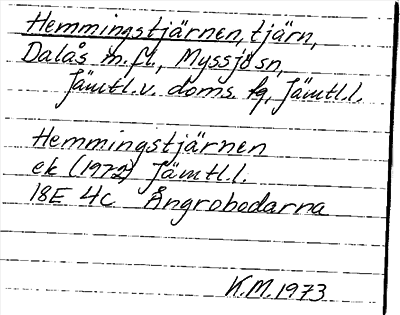 Hemmingstjärnen, tjärn,
Dalås m.fl., Myssjö sn,
Jämtl.v. doms. fg, Jämtl.l.
Hemmingstjärnen
ek (1972) Jämtl.l.
18E 4c Ångrobodarna
K.M. 1973